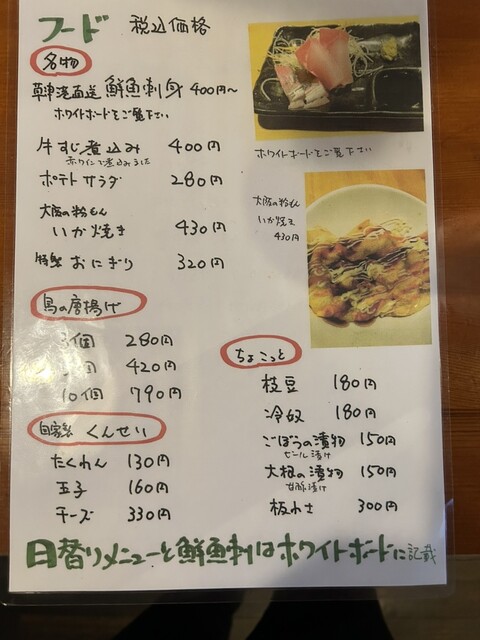 フード 税込価格
名物
草津港直送 鮮魚刺身 400円~
ホワイトボードをご覧下さい
牛すじ煮込み 400円
赤ワインで煮込みました
ポテトサラダ 280円
大阪の粉もん
いか焼き 430円
特製 おにぎり 320円
鳥の唐揚げ
個 280円
個 420円
10個 790円
自家製 くんせい
たくわん 130円
玉子 160円
チーズ 330円
ホワイトボードをご覧下さい
大阪の粉もん
いか焼き
430円
ちょこっと
枝豆 180円
冷奴 180円
ごぼうの漬物 150円
ビール漬け
大根の漬物 150円
甘酢漬け
板わさ 300円
日替りメニューと鮮魚刺はホワイトボードに記載